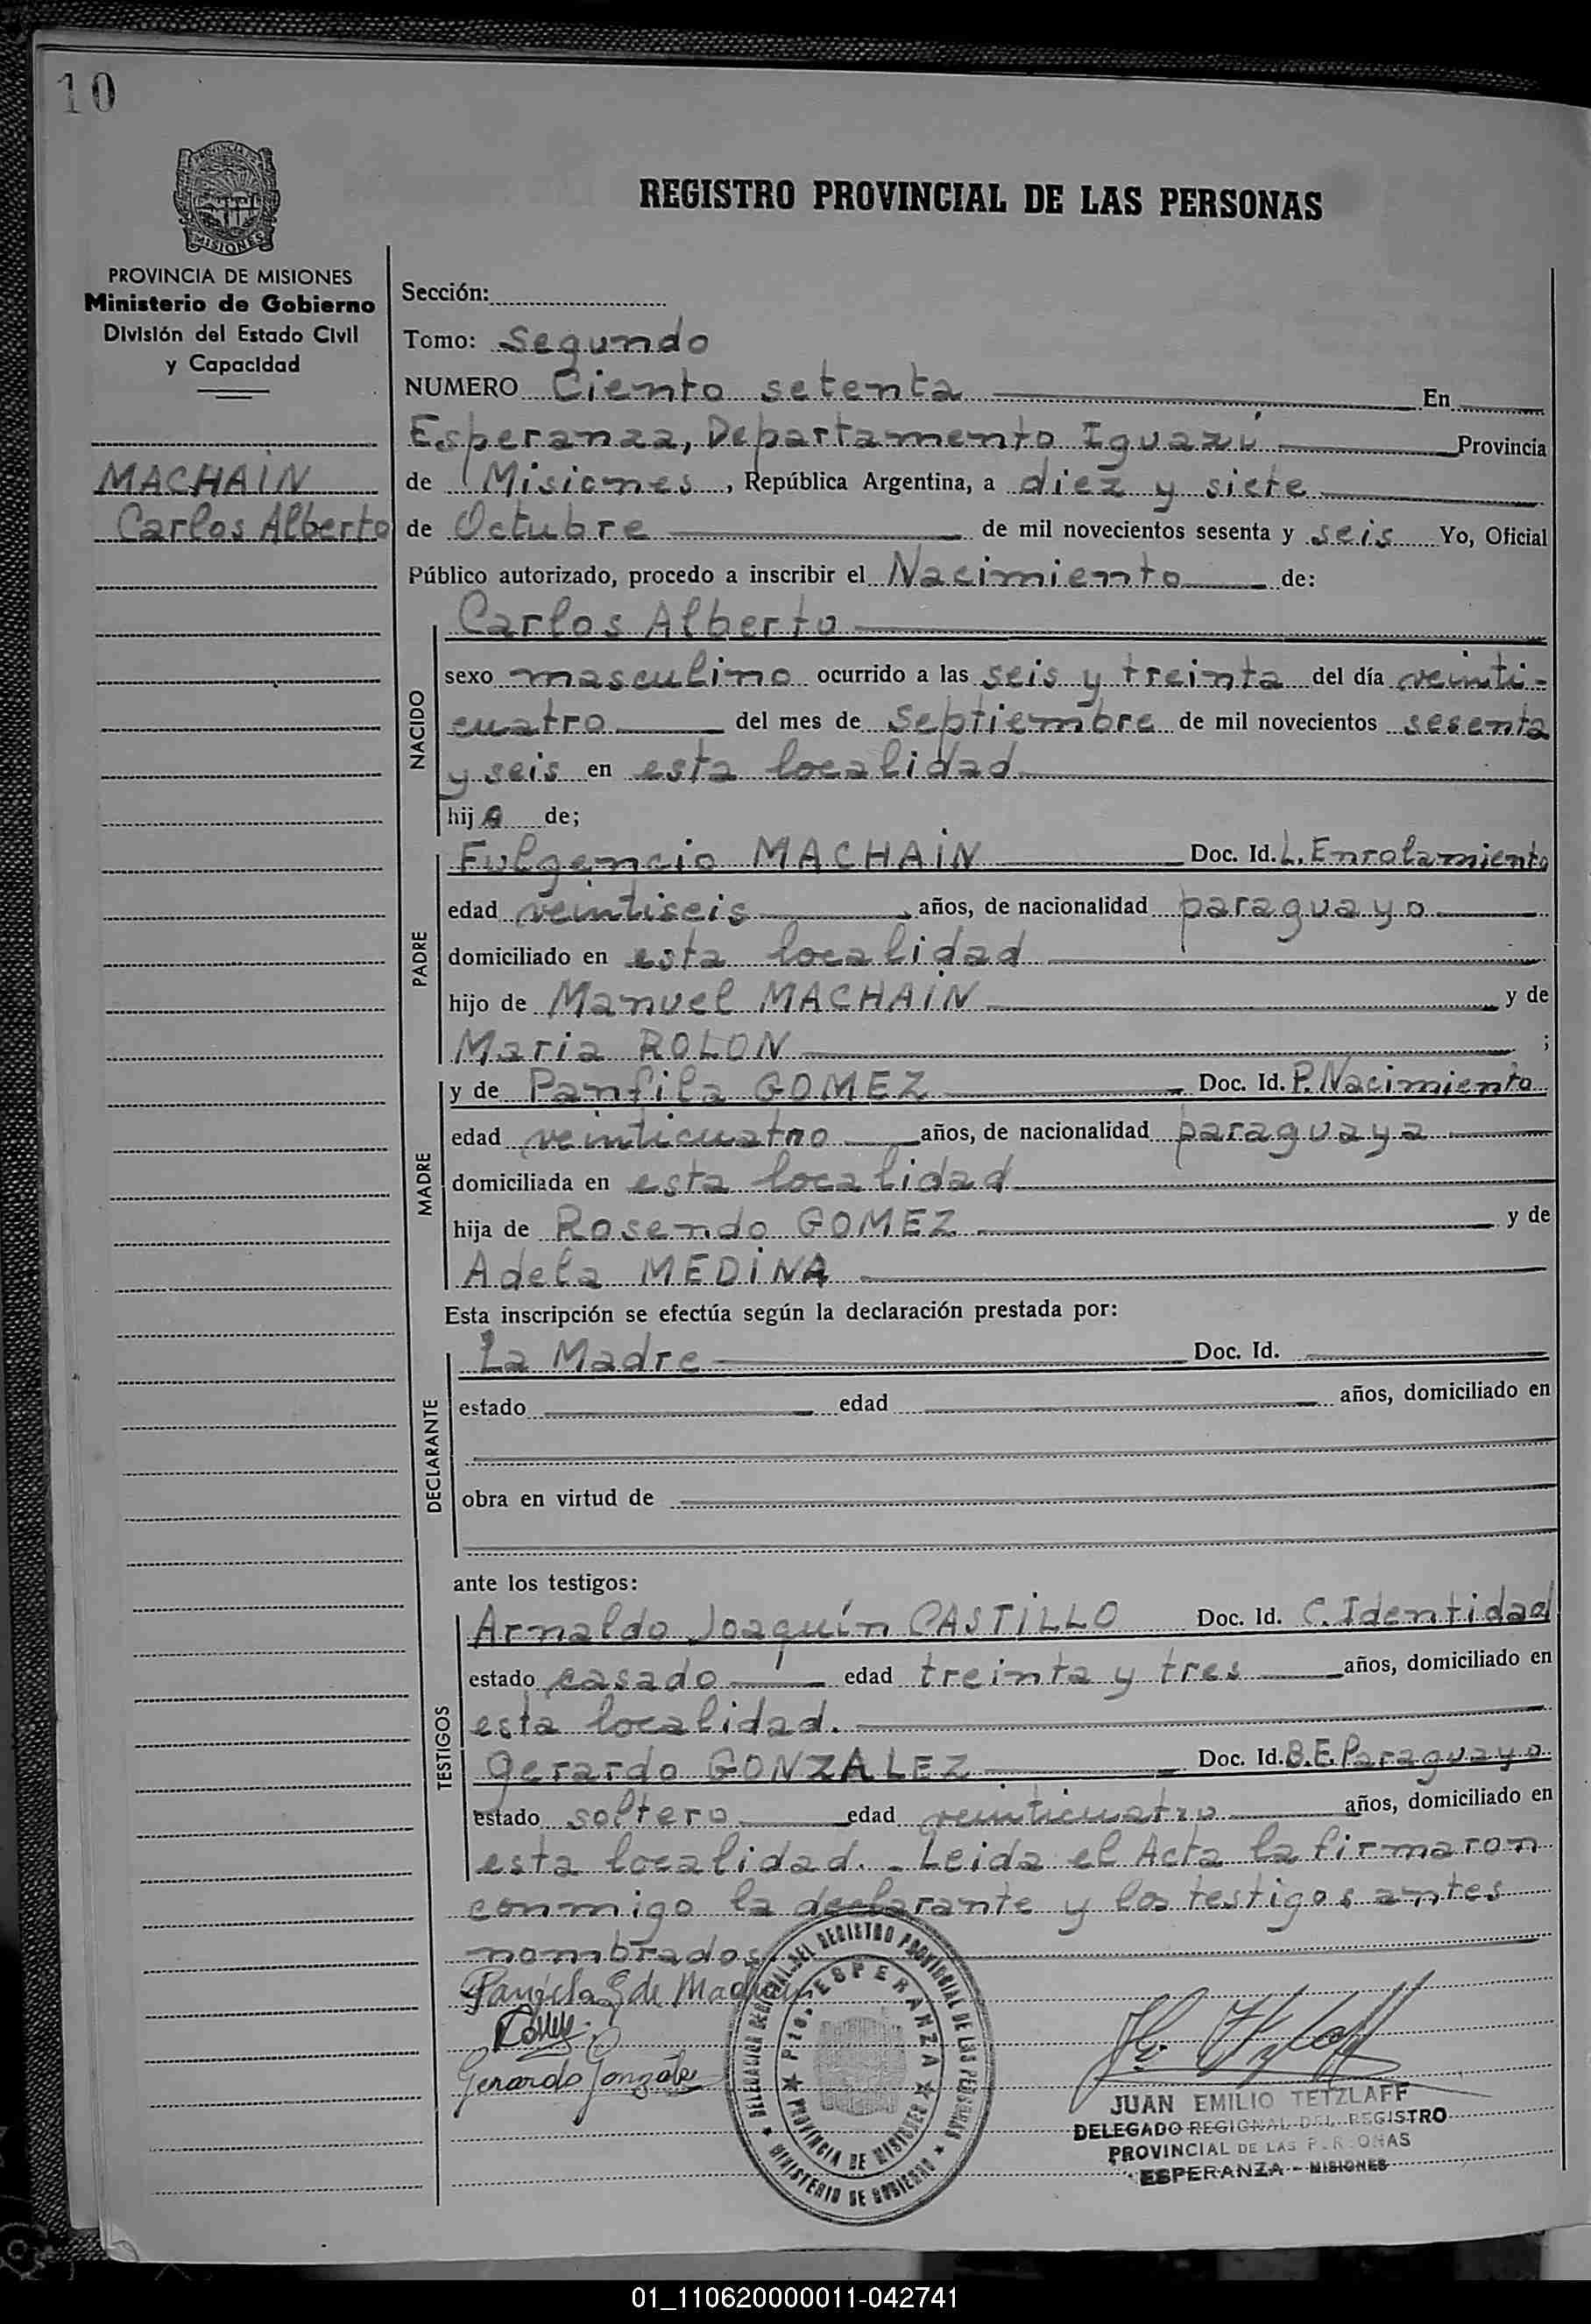 10
PROVINCIA DE MISIONES
MISIONES
REGISTRO PROVINCIAL DE LAS PERSONAS
PROVINCIA DE MISIONES
Ministerio de Gobierno
División del Estado Civil
y Capacidad
MACHAIN
Carlos Alberto
Sección:
Tomo: Segundo
NUMERO Ciento setenta En
Esperanza, Departamento Iguazú Provincia
de Misiones, República Argentina, a diez y siete
de Octubre de mil novecientos sesenta y seis Yo, Oficial
Público autorizado, procedo a inscribir el Nacimiento de:
NACIDO
Carlos Alberto
sexo masculino ocurrido a las seis y treinta del día veinti-
cuatro del mes de Septiembre de mil novecientos sesenta
y seis en esta localidad
hijo de;
PADRE
Fulgencio MACHAIN Doc. Id. L. Enrolamiento
edad veintiseis años, de nacionalidad paraguayo
domiciliado en esta localidad
hijo de Manuel MACHAIN y de
Maria ROLON ;
MADRE
y de Panfila GOMEZ Doc. Id. P. Nacimiento
edad veinticuatro años, de nacionalidad paraguaya
domiciliada en esta localidad
hija de Rosendo GOMEZ y de
Adela MEDINA
Esta inscripción se efectúa según la declaración prestada por:
DECLARANTE
La Madre Doc. Id.
estado edad años, domiciliado en
obra en virtud de
ante los testigos:
TESTIGOS
Arnaldo Joaquín CASTILLO Doc. Id. C. Identidad
estado casado edad treinta y tres años, domiciliado en
esta localidad.
Gerardo GONZALEZ Doc. Id. B.E. Paraguayo
estado soltero edad veinticuatro años, domiciliado en
esta localidad.- Leida el Acta la firmaron
conmigo la declarante y los testigos antes
nombrados.
G de
Gerardo González
DELEGACION REGIONAL DEL REGISTRO PROVINCIAL DE LAS PERSONAS
MINISTERIO DE GOBIERNO
Pto. ESPERANZA
PROVINCIA DE MISIONES
JUAN EMILIO TETZLAFF
DELEGADO REGIONAL DEL REGISTRO
PROVINCIAL DE LAS PERSONAS
ESPERANZA - MISIONES
01_110620000011-042741